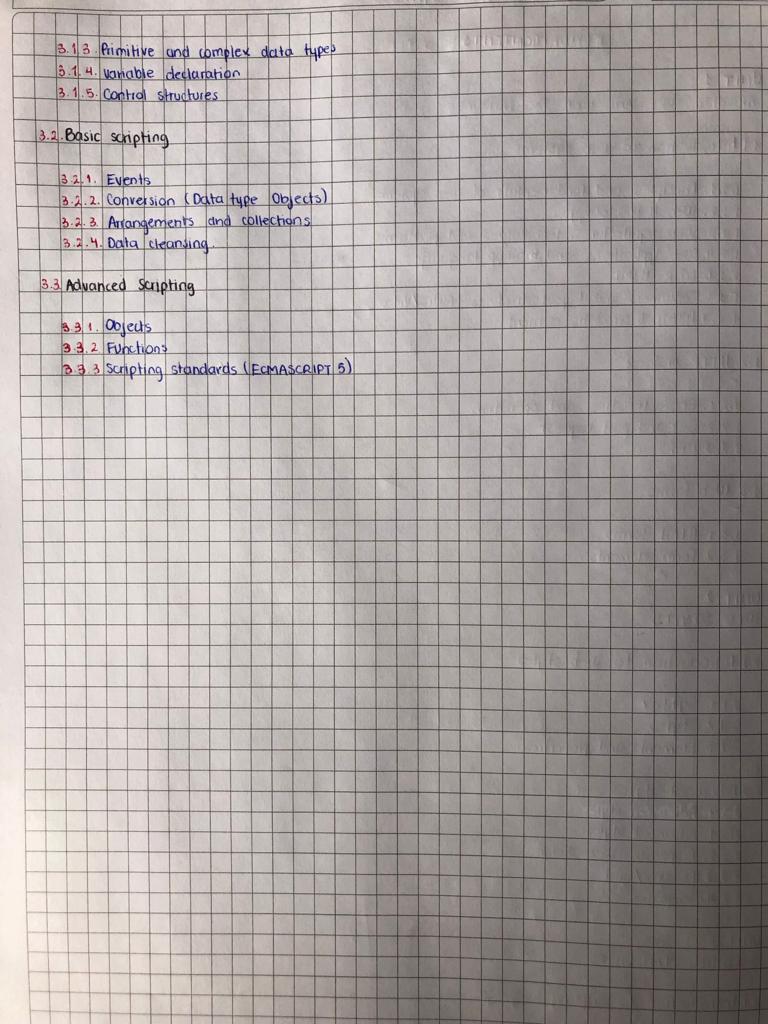 3.1.3. Primitive and complex data types
3.1.4. Variable declaration
3.1.5. Control structures
3.2. Basic scripting
3.2.1. Events
3.2.2. Conversion (Data type Objects)
3.2.3. Arrangements and collections
3.2.4. Data cleansing.
3.3 Advanced Scripting
3.3.1. Objects
3.3.2 Functions
3.3.3 Scripting standards (ECMASCRIPT 5)